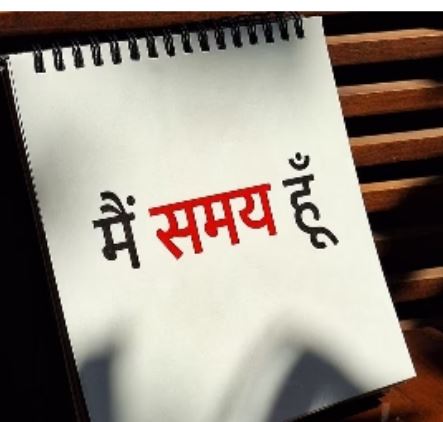 मैं समय हूँ